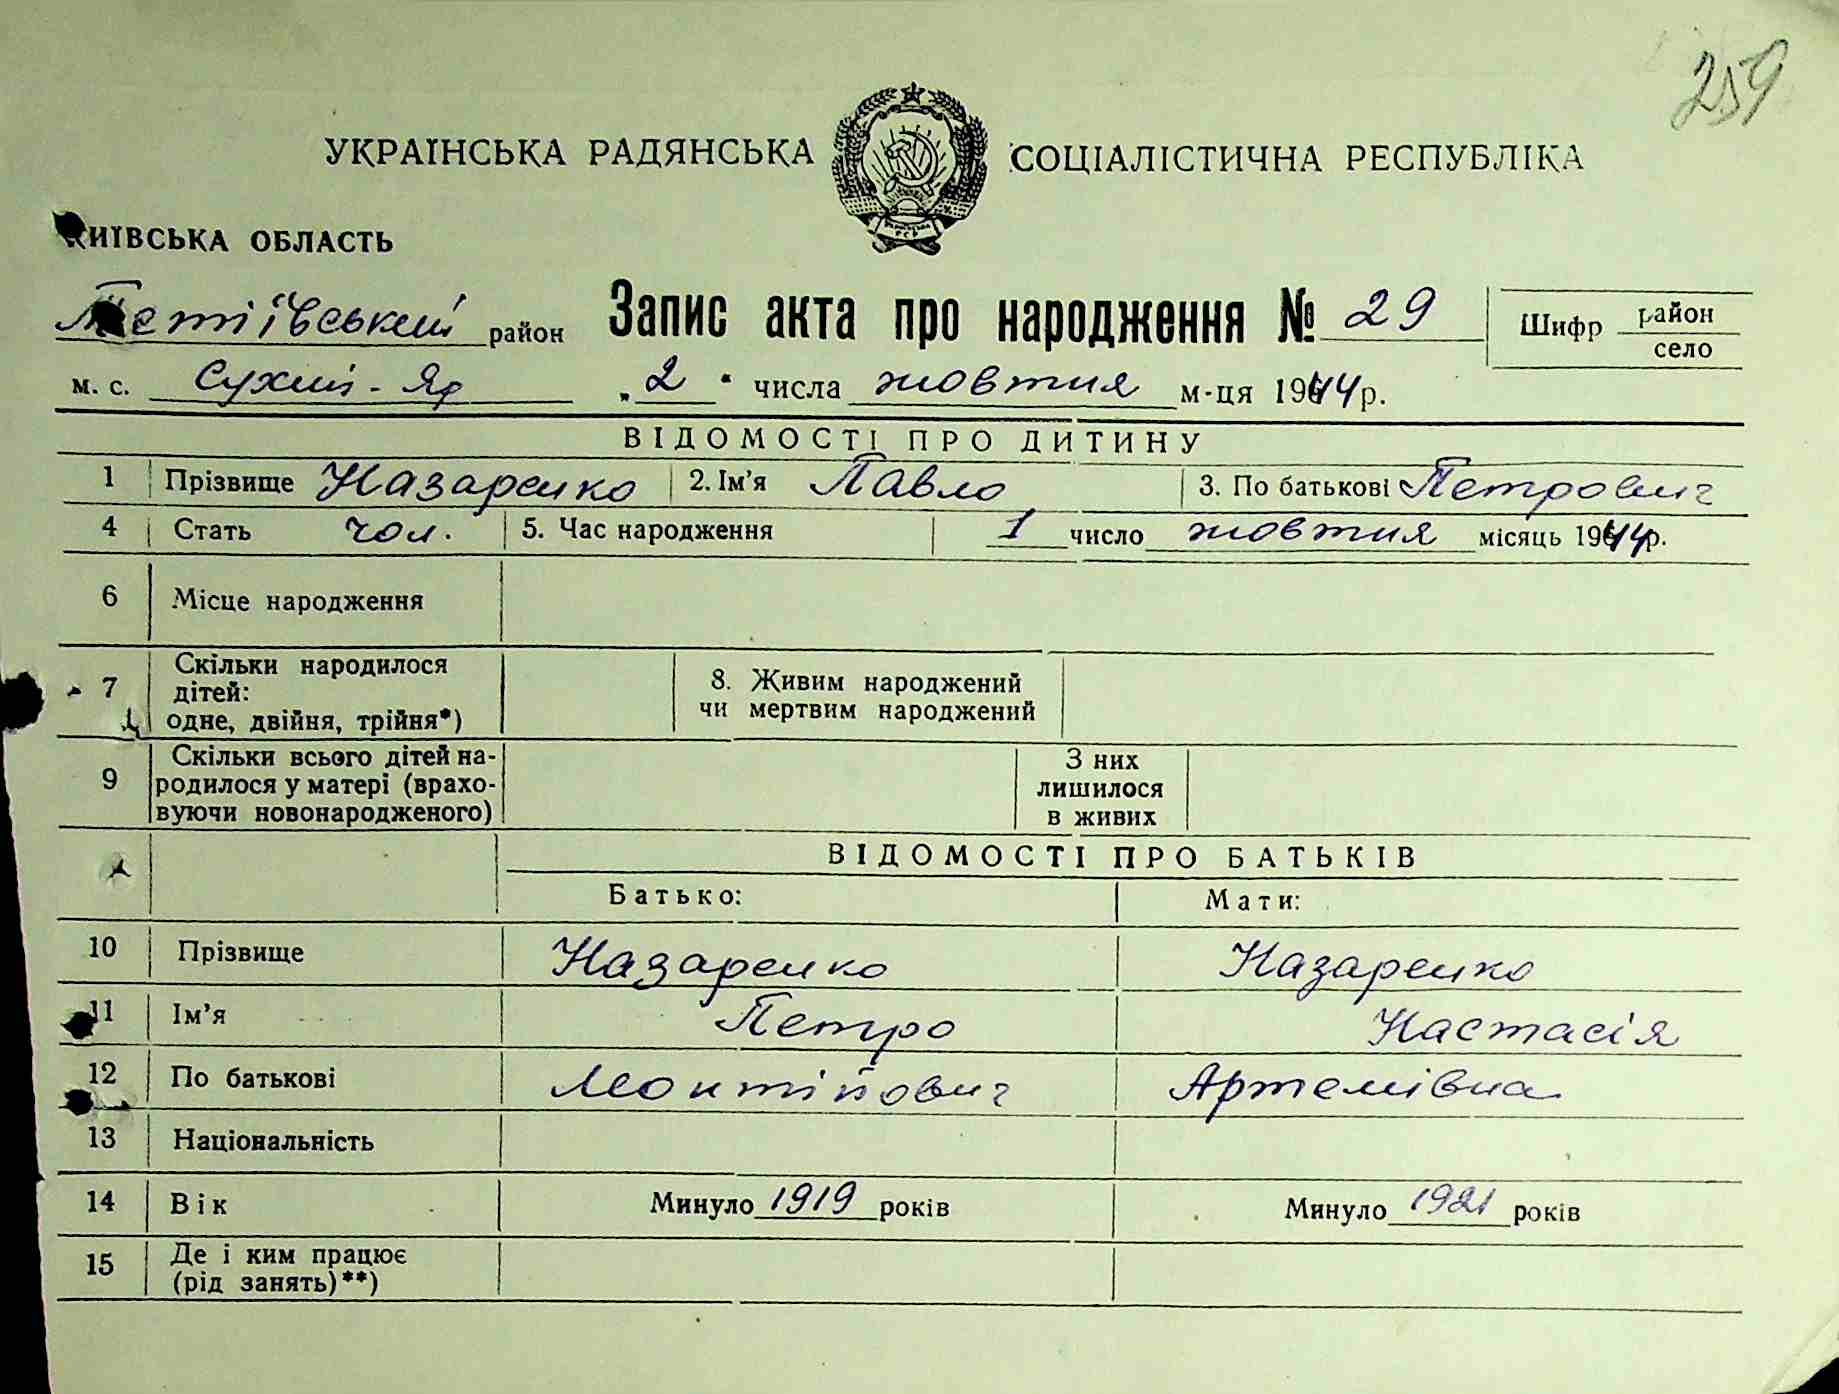 259
УКРАЇНСЬКА РАДЯНСЬКА СОЦІАЛІСТИЧНА РЕСПУБЛІКА
КИЇВСЬКА ОБЛАСТЬ
Тетіївський район Запис акта про народження № 29 Шифр район
село
м. с. Сухий-Яр „2" числа жовтня м-ця 1944 р.
ВІДОМОСТІ ПРО ДИТИНУ
1 Прізвище Назаренко 2. Ім'я Павло 3. По батькові Петрович
4 Стать чол. 5. Час народження 1 число жовтня місяць 1944 р.
6 Місце народження
7 Скільки народилося
дітей:
одне, двійня, трійня*)
8. Живим народжений
чи мертвим народжений
9 Скільки всього дітей на-
родилося у матері (врахо-
вуючи новонародженого)
З них
лишилося
в живих
ВІДОМОСТІ ПРО БАТЬКІВ
Батько: Мати:
10 Прізвище Назаренко Назаренко
11 Ім'я Петро Настасія
12 По батькові Артемівна
13 Національність
14 Вік Минуло 1919 років Минуло 1921 років
15 Де і ким працює
(рід занять)**)